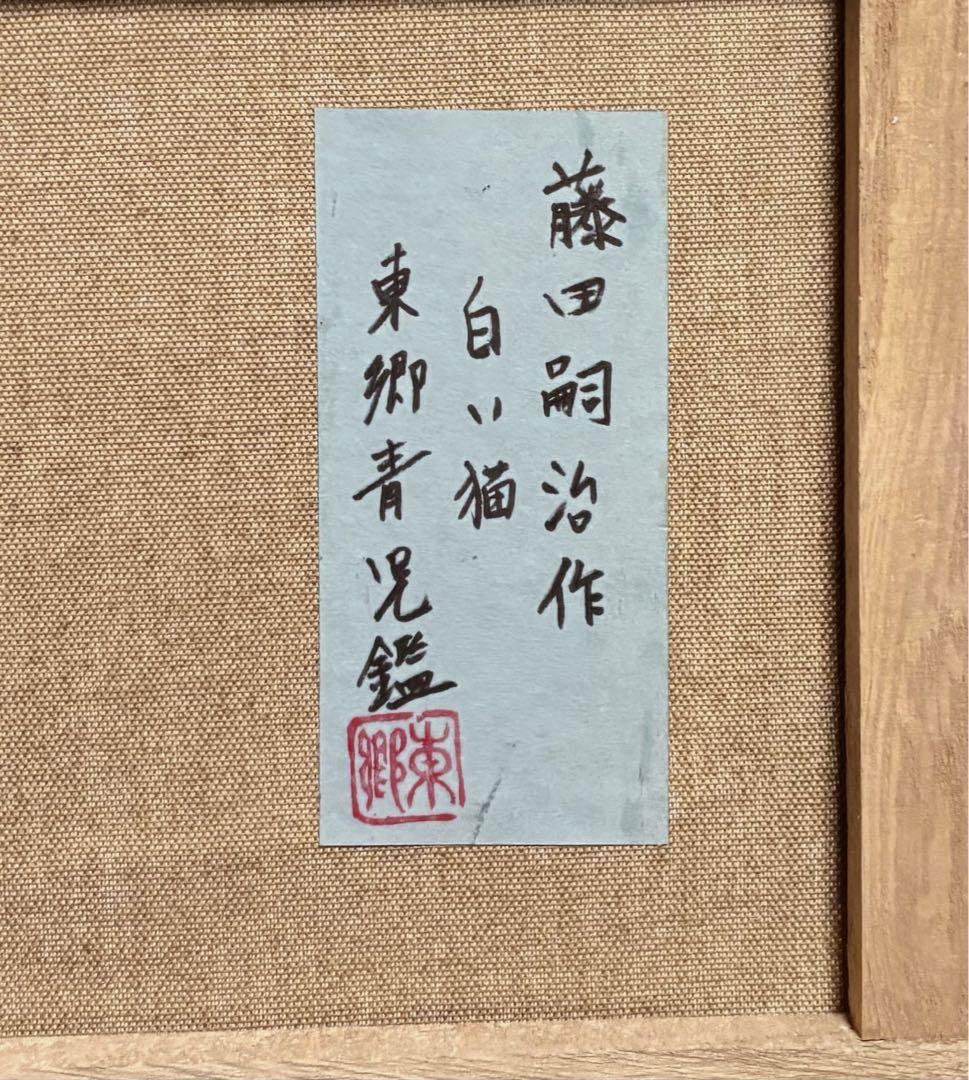 藤田嗣治作
白い猫
東郷青児鑑
東郷